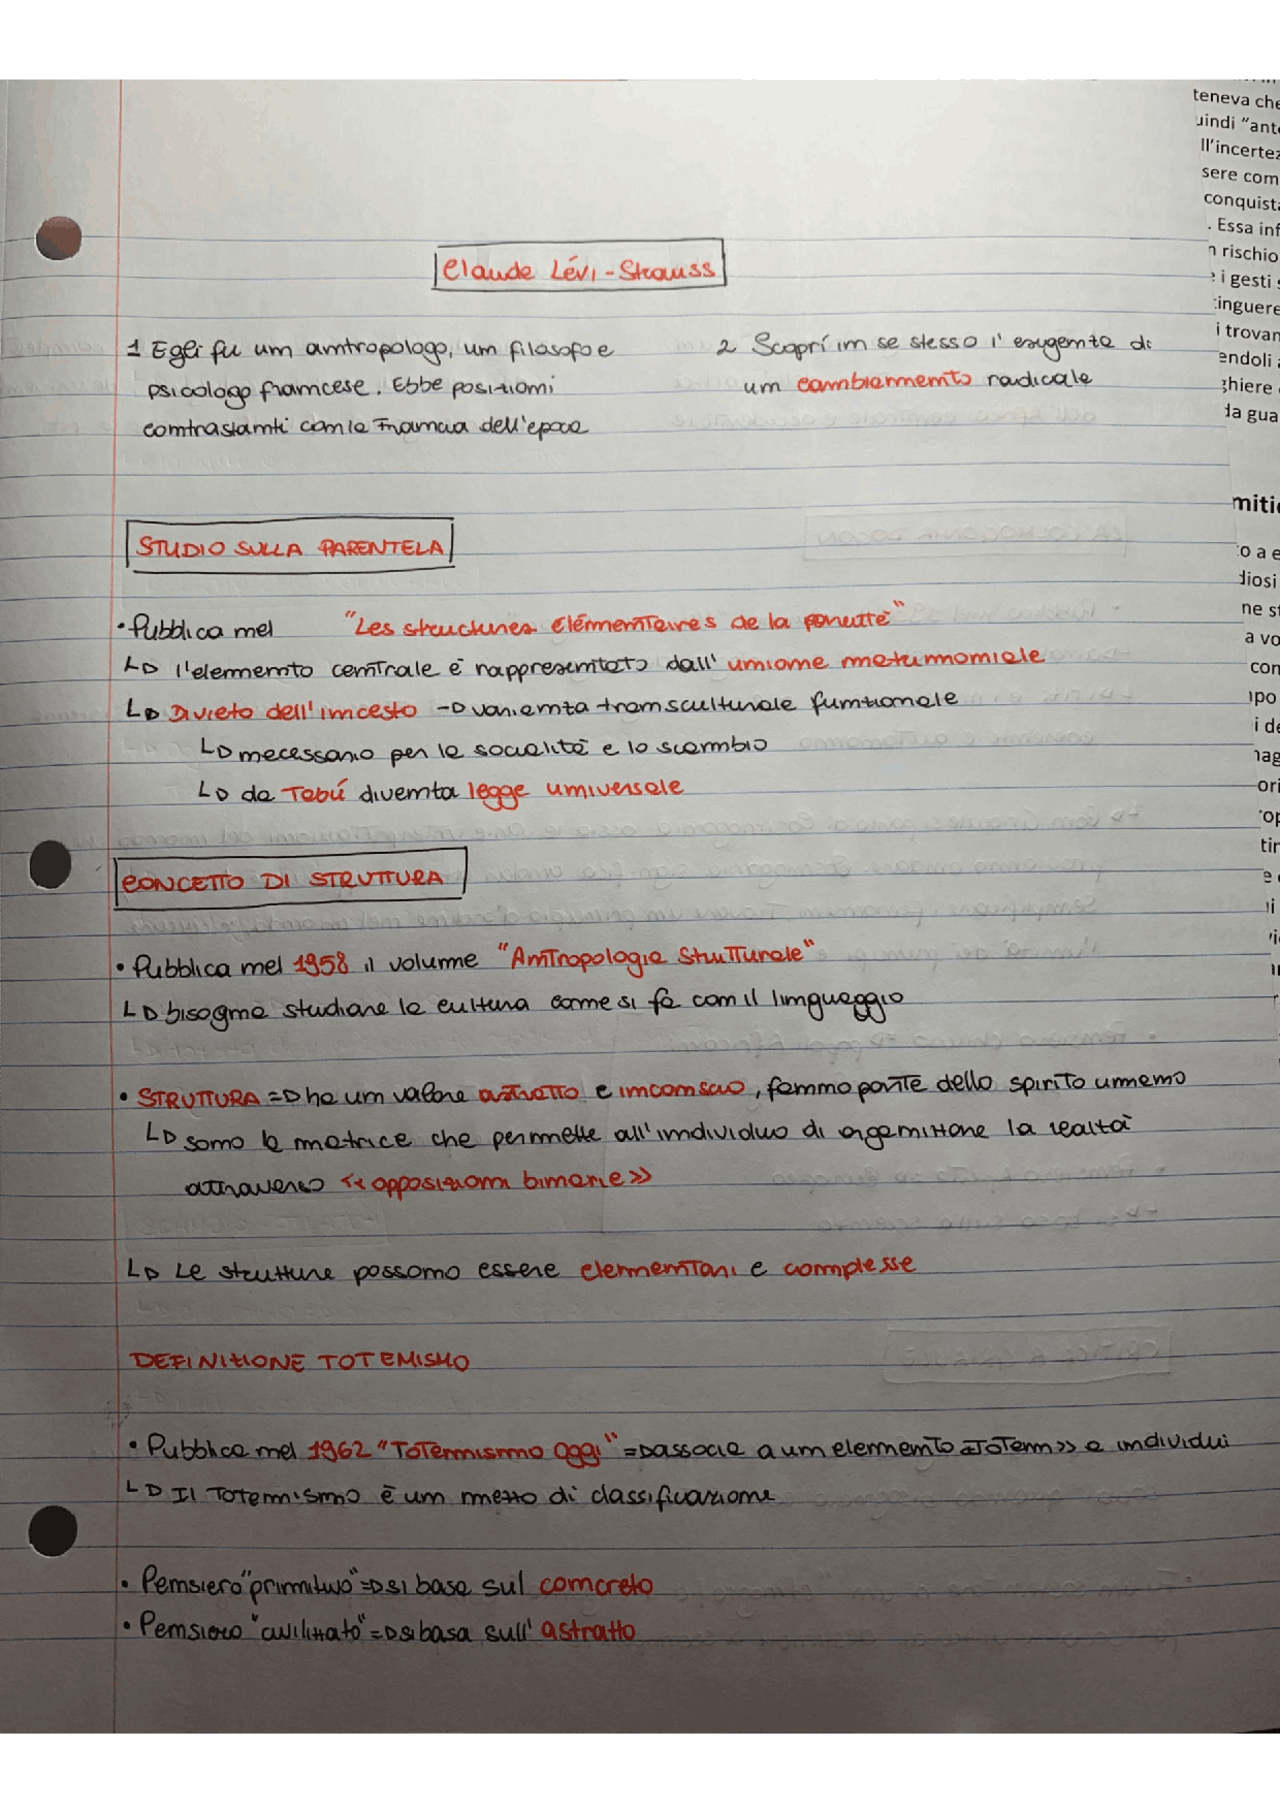 Claude Lévi-Strauss
1 Egli fu un antropologo, un filosofo e
psicologo francese. Ebbe posizioni
contrastanti con la Francia dell'epoca
2 Scoprí in se stesso l'esigenza di
un cambiamento radicale
STUDIO SULLA PARENTELA
• Pubblica nel "Les structures élémentaires de la parenté"
↳ l'elemento centrale è rappresentato dall'unione matrimoniale
↳ Divieto dell'incesto → varienza transculturale funzionale
↳ necessario per la socialità e lo scambio
↳ da Tabú diventa legge universale
CONCETTO DI STRUTTURA
• Pubblica nel 1958 il volume "Antropologia Strutturale"
↳ bisogna studiare la cultura come si fa con il linguaggio
• STRUTTURA => ha un valore astratto e inconscio, fanno parte dello spirito umano
↳ sono la matrice che permette all'individuo di organizzare la realtà
attraverso <<opposizioni binarie>>
↳ Le strutture possono essere elementari e complesse
DEFINIZIONE TOTEMISMO
• Pubblica nel 1962 "Totemismo oggi" => associa a un elemento <<Totem>> a individui
↳ Il Totemismo è un mezzo di classificazione
• Pensiero "primitivo" => si basa sul concreto
• Pensiero "civilizzato" => si basa sull'astratto
teneva che
uindi "ant
ll'incertez
sere com
conquista
. Essa inf
n rischio
e i gesti s
tinguere
i trovan
endoli a
ghiere
da gua
mitic
to a e
diosi
ne st
a vo
con
ipo
i de
nag
ori
rop
tir
e